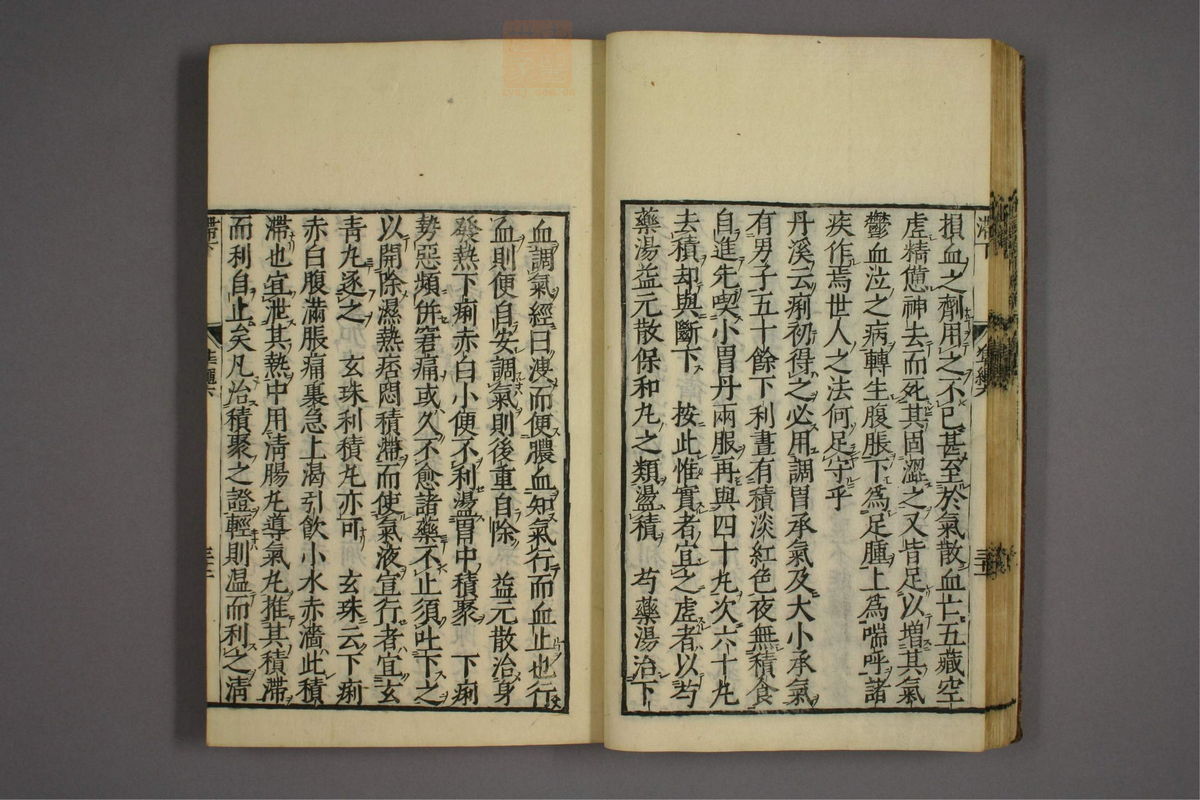 損血之劑用之不已甚至於氣散血亡五藏空
虛精憊神去而死其固澀之又皆足以増其氣
鬱血泣之病轉生腹脹下為足腫上為喘呼諸
疾作焉世人之法何足守乎
丹溪云痢初得之必用調胃承氣及大小承氣
有男子五十餘下利晝有積淡紅色夜無積食
自進先喫小胃丹兩服再與四十九次六十九
去積却與斷下 按此惟實者宜之虛者以芍
藥湯益元散保和丸之類盪積 芍藥湯治下
血調氣經曰溲而便膿血知氣行而血止也行
血則便自安調氣則後重自除 益元散治身
發熱下痢赤白小便不利盪胃中積聚 下痢
勢惡頻併窘痛或久不愈諸藥不止須吐下之
以開除濕熱痞悶積滯而使氣液宣行者宜玄
青丸逐之 玄珠利積丸亦可 玄珠云下痢
赤白腹滿脹痛裏急上渴引飲小水赤濇此積
滯也宜泄其熱中用清腸丸導氣丸推其積滯
而利自止矣凡治積聚之證輕則温而利之清